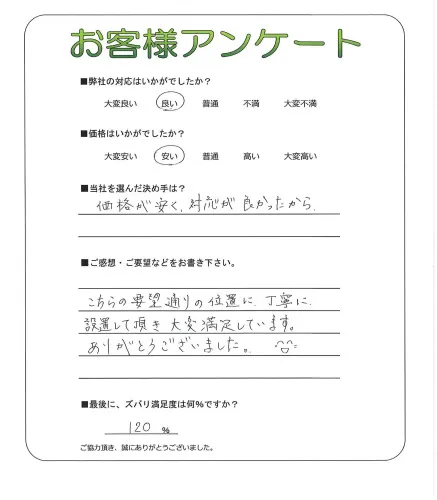 お客様アンケート
■弊社の対応はいかがでしたか?
大変良い 良い 普通 不満 大変不満
■価格はいかがでしたか?
大変安い 安い 普通 高い 大変高い
■当社を選んだ決め手は?
価格が安く、対応が良かったから。
■ご感想・ご要望などをお書き下さい。
こちらの要望通りの位置に、丁寧に、
設置して頂き大変満足しています。
ありがとうございました。 ^^
■最後に、ズバリ満足度は何%ですか?
120 %
ご協力頂き、誠にありがとうございました。